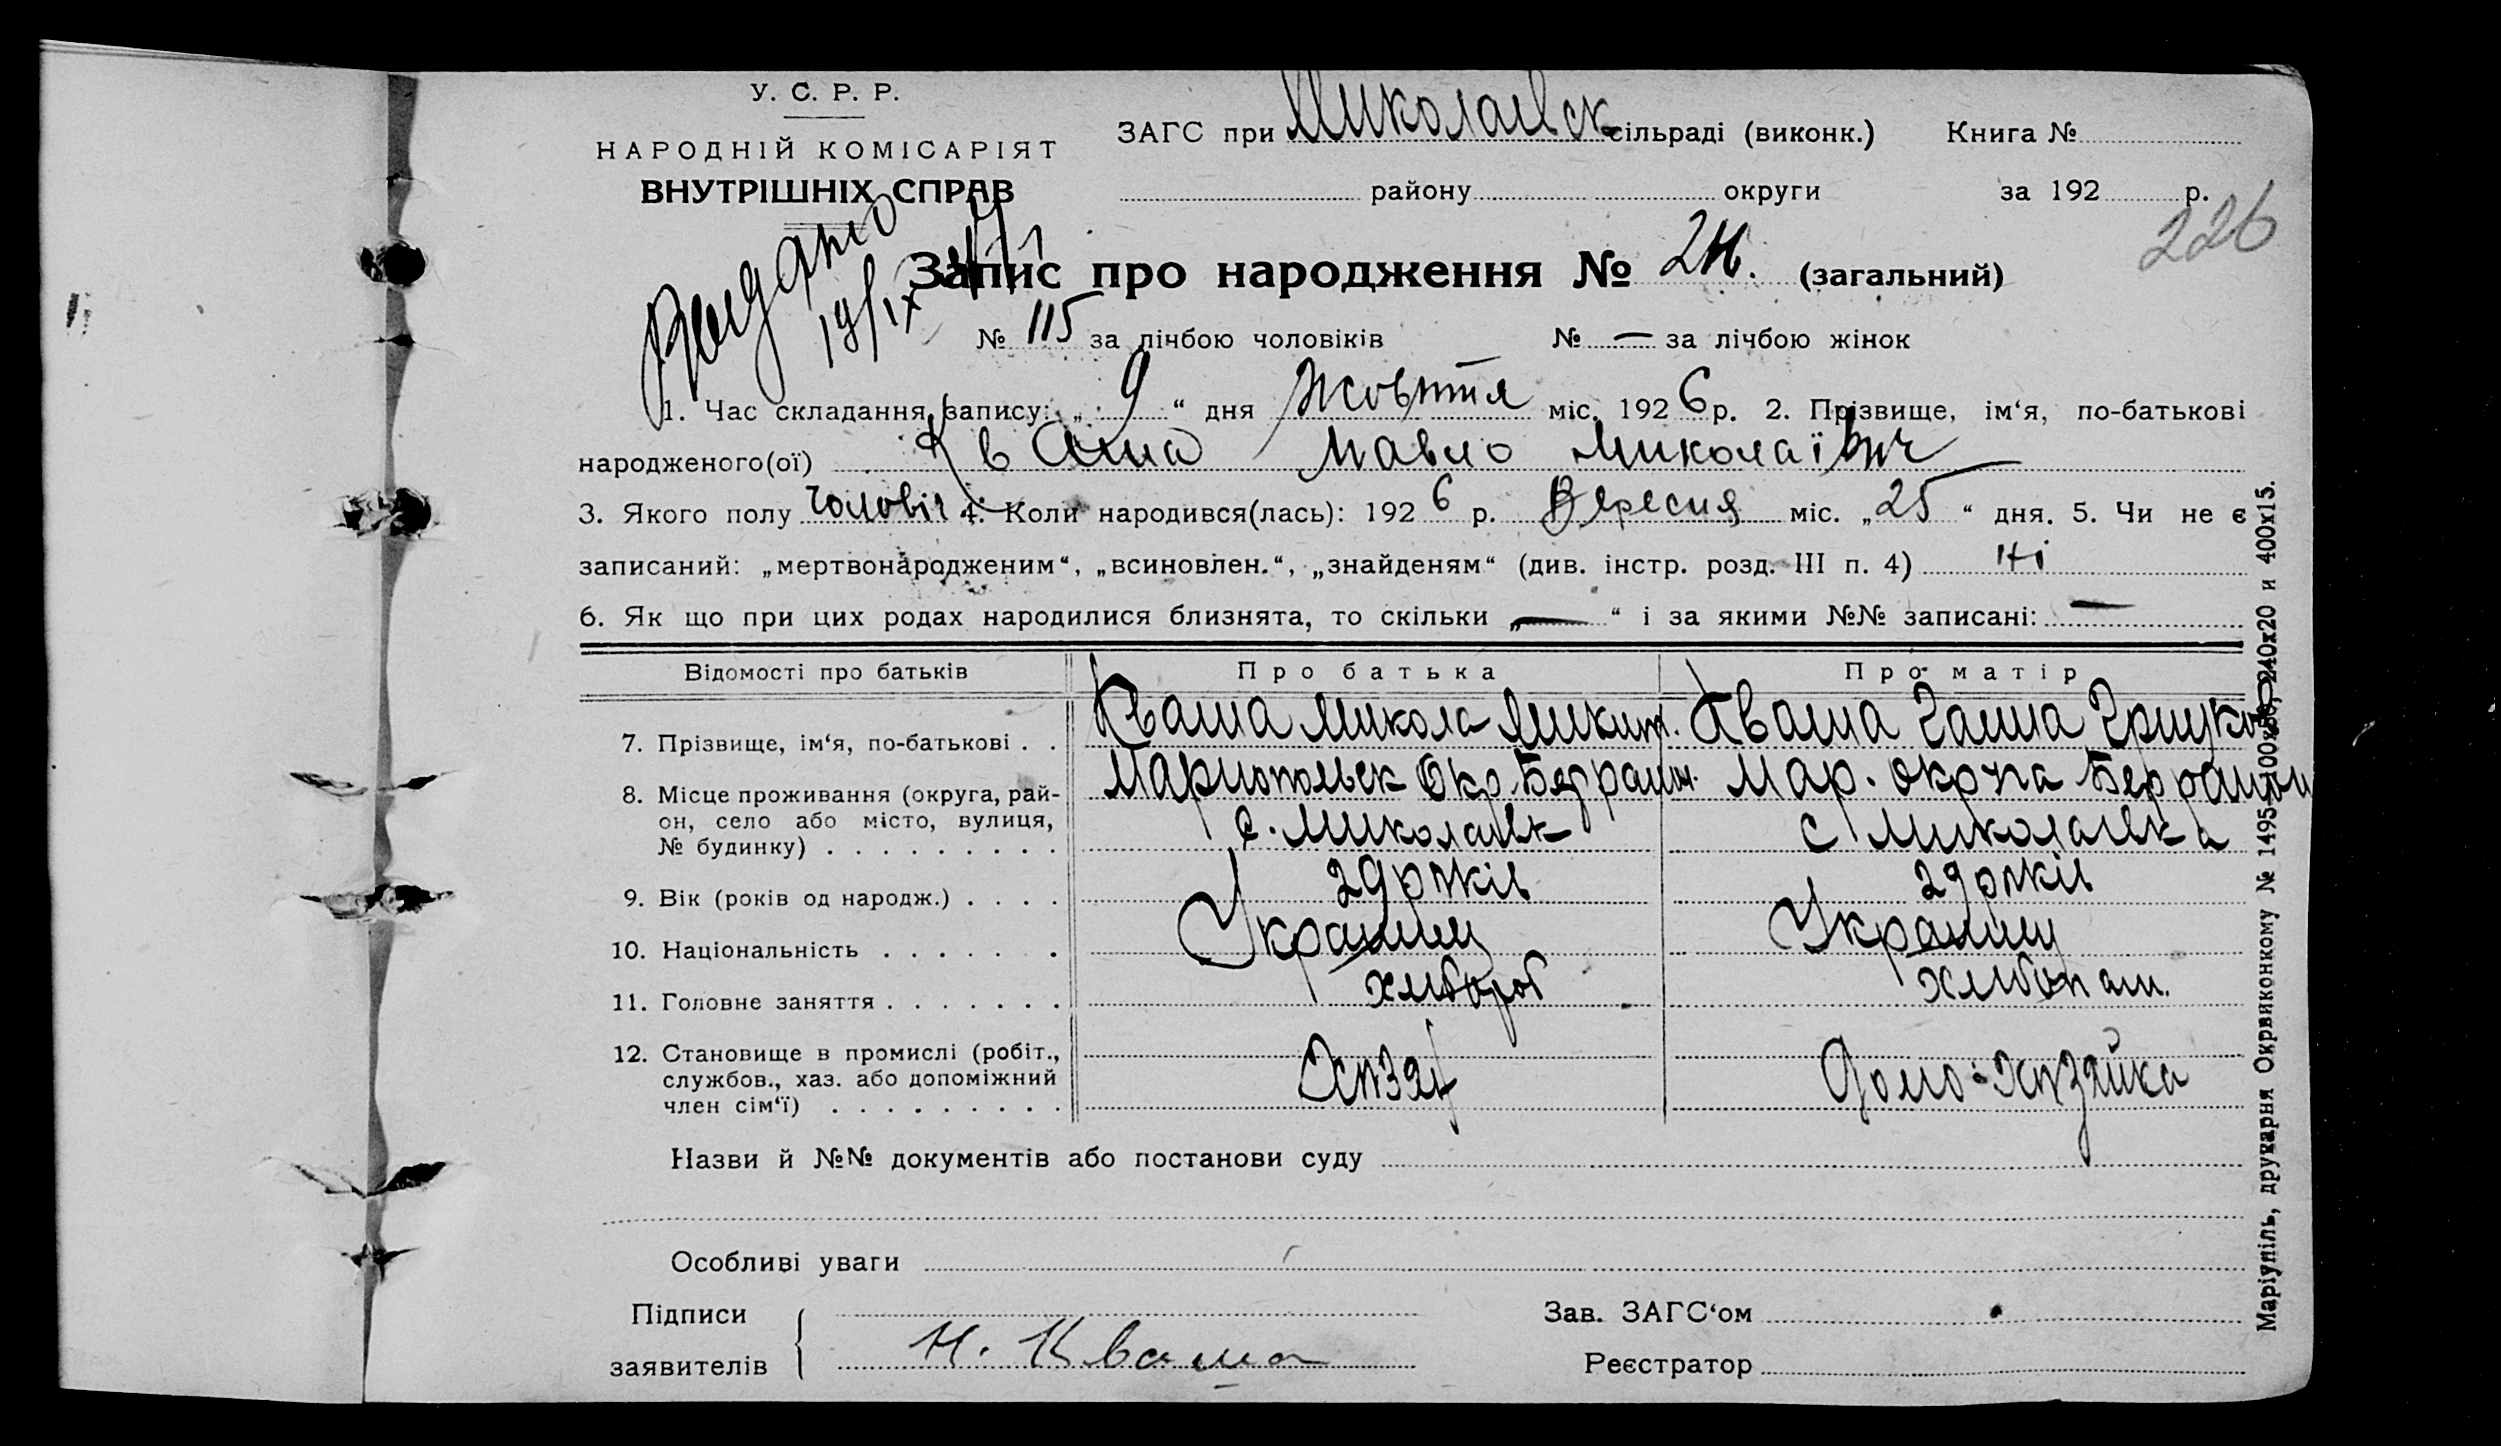 У. С. Р. Р.
НАРОДНІЙ КОМІСАРІЯТ
ВНУТРІШНІХ СПРАВ
ЗАГС при Миколаївск сільраді (виконк.) Книга №
району округи за 192 р.
226
Видано
19/IX
Запис про народження № (загальний)
№ 115 за лічбою чоловіків № — за лічбою жінок
1. Час складання запису: „ 9 “ дня Жовтня міс. 1926 р. 2. Прізвище, ім‘я, по-батькові
народженого(ої) Кваша Павло Миколаївич
3. Якого полу чоловіч 4. Коли народився(лась): 1926 р. Вересня міс. „ 25 “ дня. 5. Чи не є
записаний: „мертвонародженим“, „всиновлен.“, „знайденям“ (див. інстр. розд. III п. 4) Ні
6. Як що при цих родах народилися близнята, то скільки „ — “ і за якими №№ записані: —
Відомості про батьків Про батька Про матір
7. Прізвище, ім‘я, по-батькові . . Кваша Микола Микит. Кваша Ганна Грицков
8. Місце проживання (округа, рай- Мариопольск Окр. Бер район. Мар. окрга Бер район
он, село або місто, вулиця, с. Миколаївк с Миколаївка
№ будинку) . . . . . . . . .
9. Вік (років од народж.) . . . . 29 років 29 років
10. Національність . . . . . . . Украинец Украинец
11. Головне заняття . . . . . . . хлибороб хлибопаш.
12. Становище в промислі (робіт., Хозяї Домо-хозяйка
службов., хаз. або допоміжний
член сім‘ї) . . . . . . . . .
Назви й №№ документів або постанови суду
Особливі уваги
Підписи Зав. ЗАГС‘ом
заявителів Н. Кваша Реєстратор
Маріупіль, друкарня Окрвиконкому № 1495-100х50, 240х20 и 400х15.